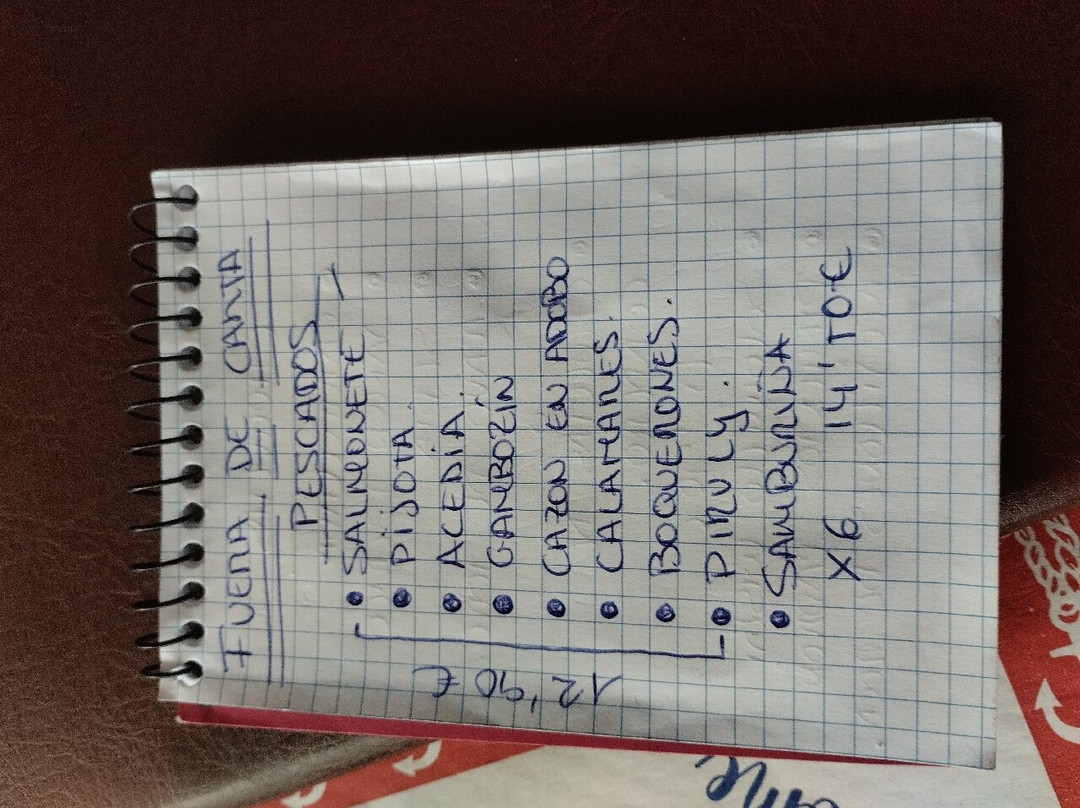 FUERA DE CARTA
PESCADOS
12'90 €
• SALMONETE
• PIJOTA.
• ACEDIA.
• GAMBOZÍN
• CAZON EN ADOBO
• CALAMARES.
• BOQUERONES.
• PIRULY.
• SAMBURIÑA
X6 14'70€